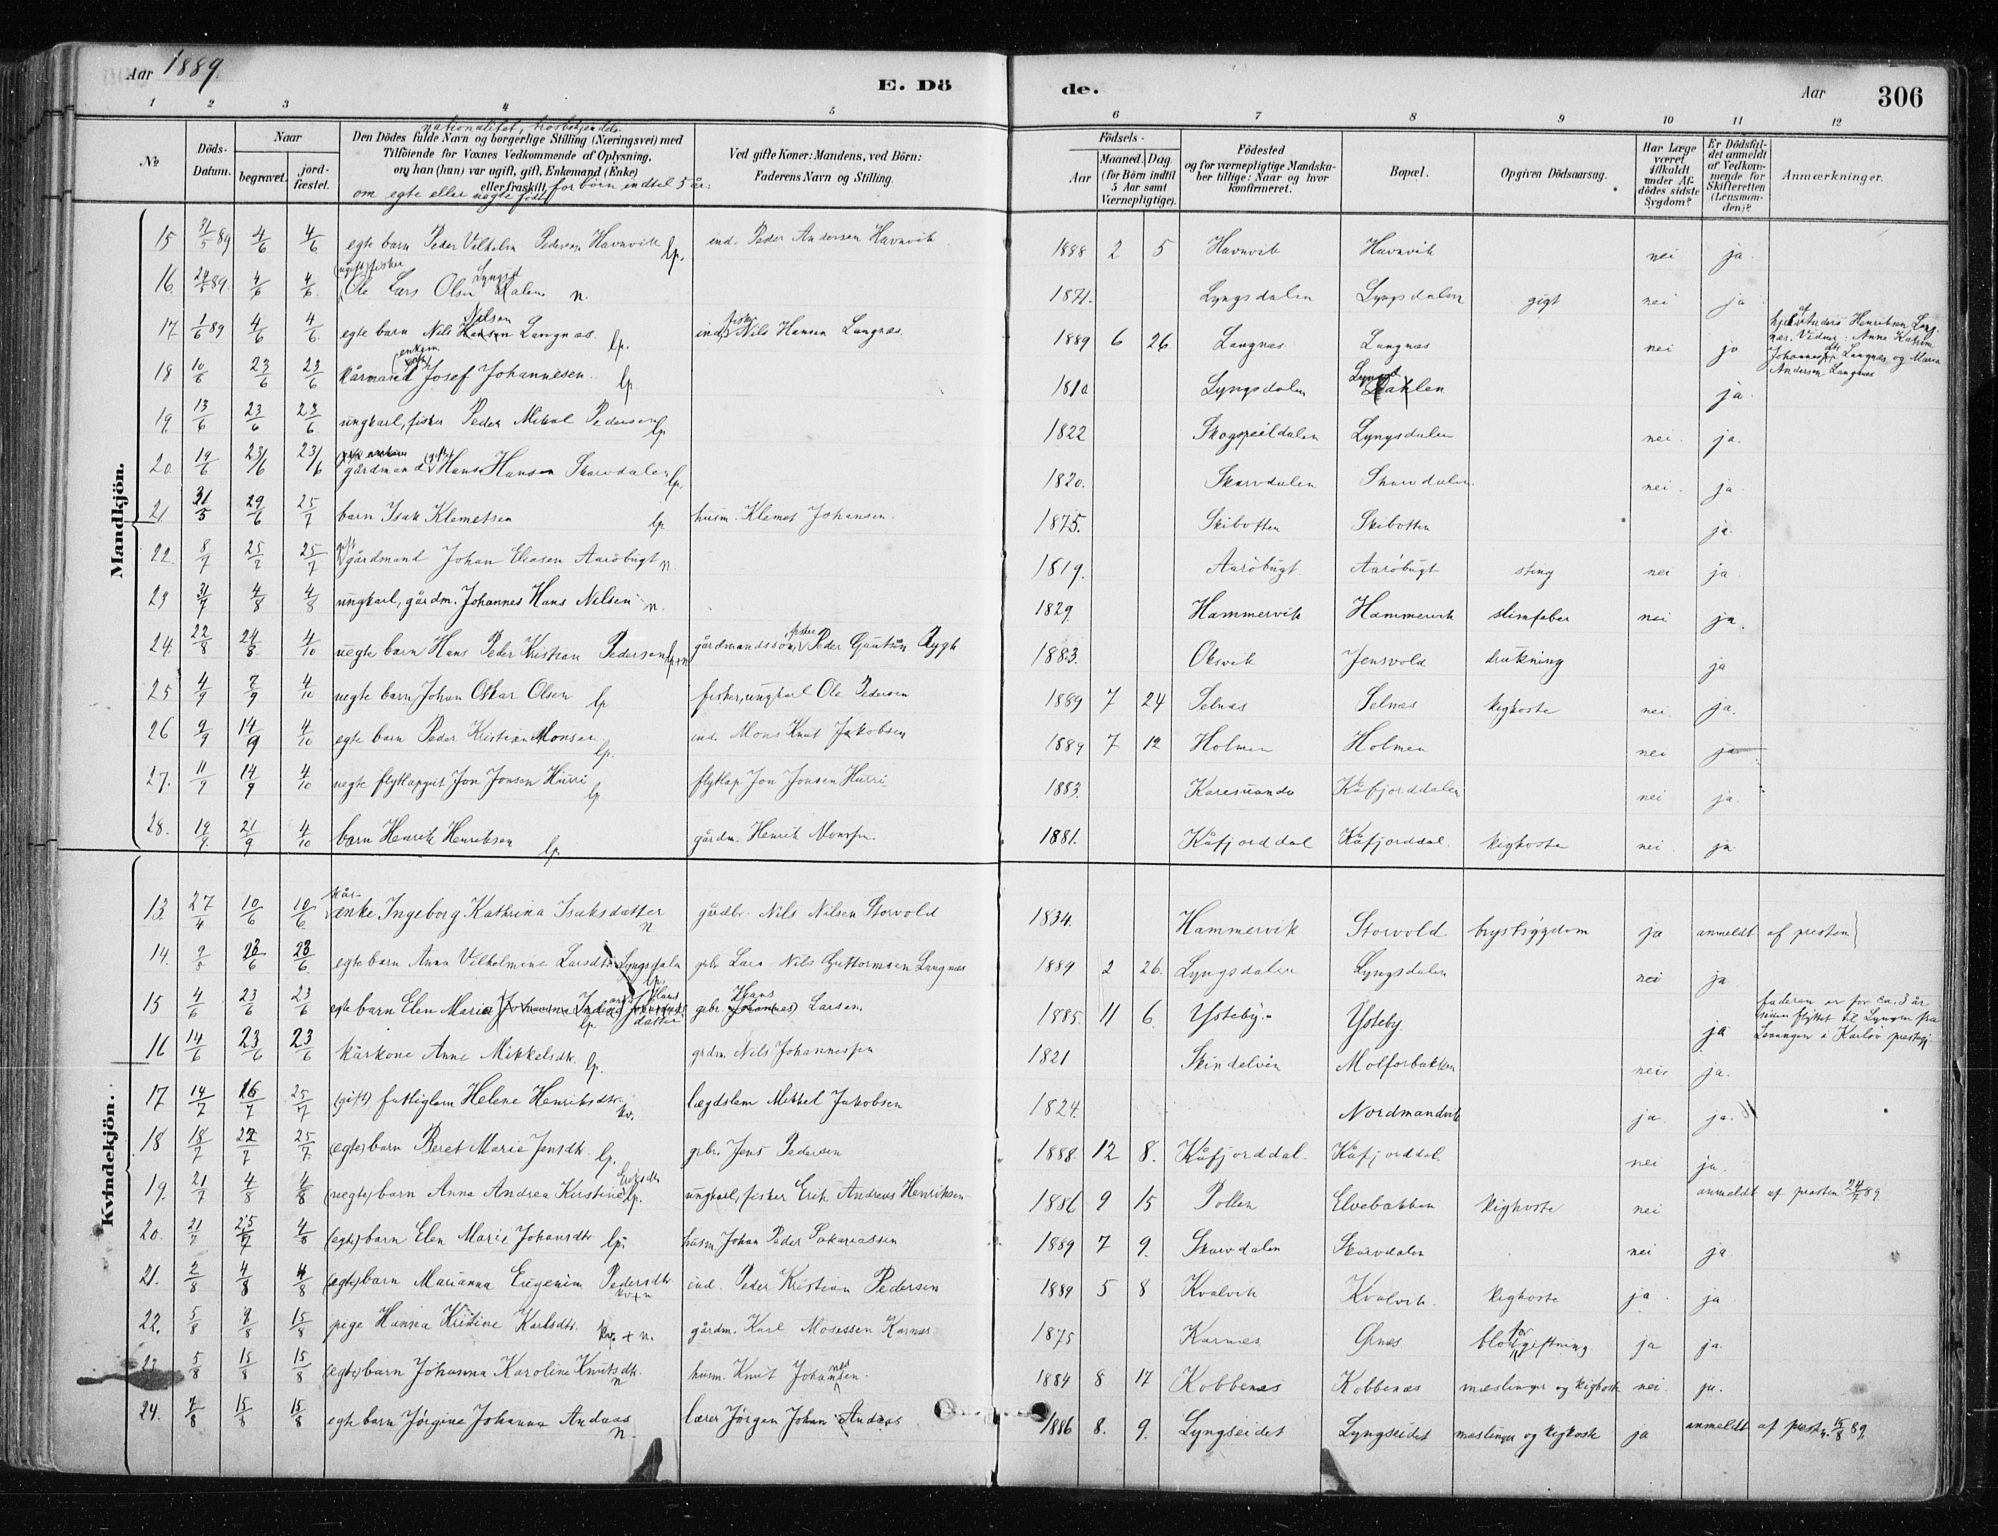 Aar 1889.
E. Dö
de.
Aar
306
1 2 3 4 5 6 7 8 9 10 11 12
No
Döds-Datum.
Naar
begravet.
jord-fæstet.
nationalitet, trosbekjendels.
Den Dödes fulde Navn og borgerlige Stilling (Næringsvei) med
Tilföiende for Voxnes Vedkommende af Oplysning,
om han (hun) var ugift, gift, Enkemand (Enke)
eller fraskilt, for børn indtil 5 år:
om egte eller uegte født
Ved gifte Koner: Mandens, ved Börn:
Faderens Navn og Stilling.
Födsels-
Aar
Maaned. Dag.
(for Börn indtil 5 Aar samt Værnepligtige).
Födested
og for værnepligtige Mandskaber tillige: Naar og hvor konfirmeret.
Bopæl.
Opgiven Dödsaarsag.
Har Læge været tilkaldt under Afdödes sidste Sygdom?
Er Dödsfaldet anmeldt af Vedkommende for Skifteretten (Lensmanden)?
Anmærkninger.
Mandkjön.
15 31/5 89 4/6 4/6 egte barn Peder Vilhelm Pedersen Havnvik lp. ind. Peder Andersen Havnvik 1888 2 5 Havnvik Havnvik nei ja.
16. 4/6 4/6 (ugift) fisker Ole Lars Olsen Lyngsdalen n. 1871. Lyngsdalen Lyngsdalen gigt nei ja
17. 1/6 89 4/6 4/6 egte barn Nils Hansen Nilsen Langnæs. lp. ind. fisker Nils Hansen Langnæs. 1889 6 26 Langnæs Langnæs nei ja
18 10/6 23/6 23/6 kårmand enkem. Josef Johannesen. lp 1810 Lyngsdalen Lyngsdalen ja.
19. 13/6 23/6 23/6 ungkarl, fisker Peder Mikal Pedersen lp 1822 Lyngsdalen nei. ja.
20. 19/6 23/6 23/6 gårdmand (gift) Hans Hansen Skarvdalen lp. 1820. Skarvdalen Skarvdalen. nei. ja
21 31/5 29/6 25/7 barn Isak Klemetsen lp husm. Klemet Johansen. 1875. Skibotten Skibotten ja.
22. 8/7 25/7 25/7 gift gårdmand Johan Eliasen Aarøbugt n. 1819. Aarøbugt Aarøbugt sting nei ja.
23 31/7 4/8 4/8 ungkarl, gårdm. Johannes Hans Nilsen n. 1829. Hammervik Hammervik slimfeber nei ja.
24. 22/8 24/8 4/10 uegte barn Hans Peder Kristian Pedersen lp+n gårdmandssøn, fisker Peder Rygh 1883. Oksvik Jensvold drukning ja
25 4/9 7/9 4/10 uegte barn Johan Oskar Olsen lp fisker, ungkarl Ole Pedersen 1889 7 24 Selnæs Selnæs kighoste nei. ja.
26 9/9 14/9 4/10 egte barn Peder Kristian Monsen lp. ind. Mons Knut Jakobsen 1889 7 12 Holmen Holmen nei ja
27. 11/9 14/9 4/10 uegte flytlapgut Jon Jonsen Hurri lp flytlap Jon Jonsen Hurri 1883. Karesuando Kåfjorddalen nei ja.
28. 19/9 21/9 4/10 barn Henrik Henriksen lp. gårdm. Henrik Monsen. 1881. Kåfjorddal Kåfjorddal. kighoste nei. ja.
hjel. Anders Henriksen Langnæs. Vidner: Anna Katrine Johannesdtr Langnæs og Maren Andersen Langnæs
Kvindekjön.
13. 27/4 10/6 10/6 kårenke Ingeborg Kathrina Isaksdatter n gårdbr. Nils Nilsen Storvold 1834. Hammervik Storvold brystsygdom ja anmeldt af presten
14. 23/6 23/6 egte barn Anna Vilhelmine Larsdtr Lyngsdalen lp. gbr. Lars Nils Guttormsen Langnæs 1889 2 26. Lyngsdalen Lyngsdalen nei ja
15 4/6 23/6 23/6 egte barn Elen Maria Hansdatter lp. gbr. Hans (Johannes) Larsen 1885. 11 6. Ysteby. Ysteby. ja
faderen er for ca. 3 år siden flyttet til Lyngen fra Lenangen i Karlsø prestegj
16 14/6 23/6 23/6 kårkone Anne Mikkelsdtr. lp. grdm. Nils Johannessen 1821 Skindelven nei ja.
17 14/7 16/7 25/7 (gift) fattiglem Helene Henriksdtr. kv. lægdslem Mikkel Jakobsen 1824. Nordmandvik ja ja.
18 18/7 22/7 25/7 (egte) barn Beret Marie Jensdtr. lp. gbr. Jens Pedersen 1888. 12 8. Kåfjorddal. Kåfjorddal. nei ja.
19. 21/7 4/8 4/8 (uegte) barn Anna Andrea Kirstine Eriksdtr lp. ungkarl, fisker Erik Andreas Henriksen 1886 9 15 Pollen Elvebakken kighoste nei anmeldt af presten 24/7 89
20. 21/7 25/7 4/8 (egte) barn Elen Marie Johansdtr lp. husm. Johan Peder Sakariassen 1889 7 9. Skarvdalen Skarvdalen nei ja
21. 2/8 4/8 4/8 (egte) barn Marianna Eugenim Pedersdtr kv+n ind. Peder Kristian Pedersen 1889 5 8 Kvalvik Kvalvik. kighoste ja. ja
22. 5/8 9/8 15/8 pige Hanna Kristine Karlsdtr. kv. + n. gårdm. Karl Mosessen Karnæs 1875 Karnæs Ørnes blodforgiftning ja ja.
23 5/8 15/8 15/8 (egte) barn Johanna Karoline Knutsdtr. n husm. Knut Johannesen. 1884 8 17 Kobbenæs Kobbenæs mæslinger og kighoste nei. ja.
24. 7/8 15/8 15/8 egte barn Jørgine Johanna Andaas n. lærer Jørgen Johan Andaas 1886 8. 9. Lyngseidet Lyngseidet mæslinger og kighoste ja anmeldt af prest. 15/8 89.